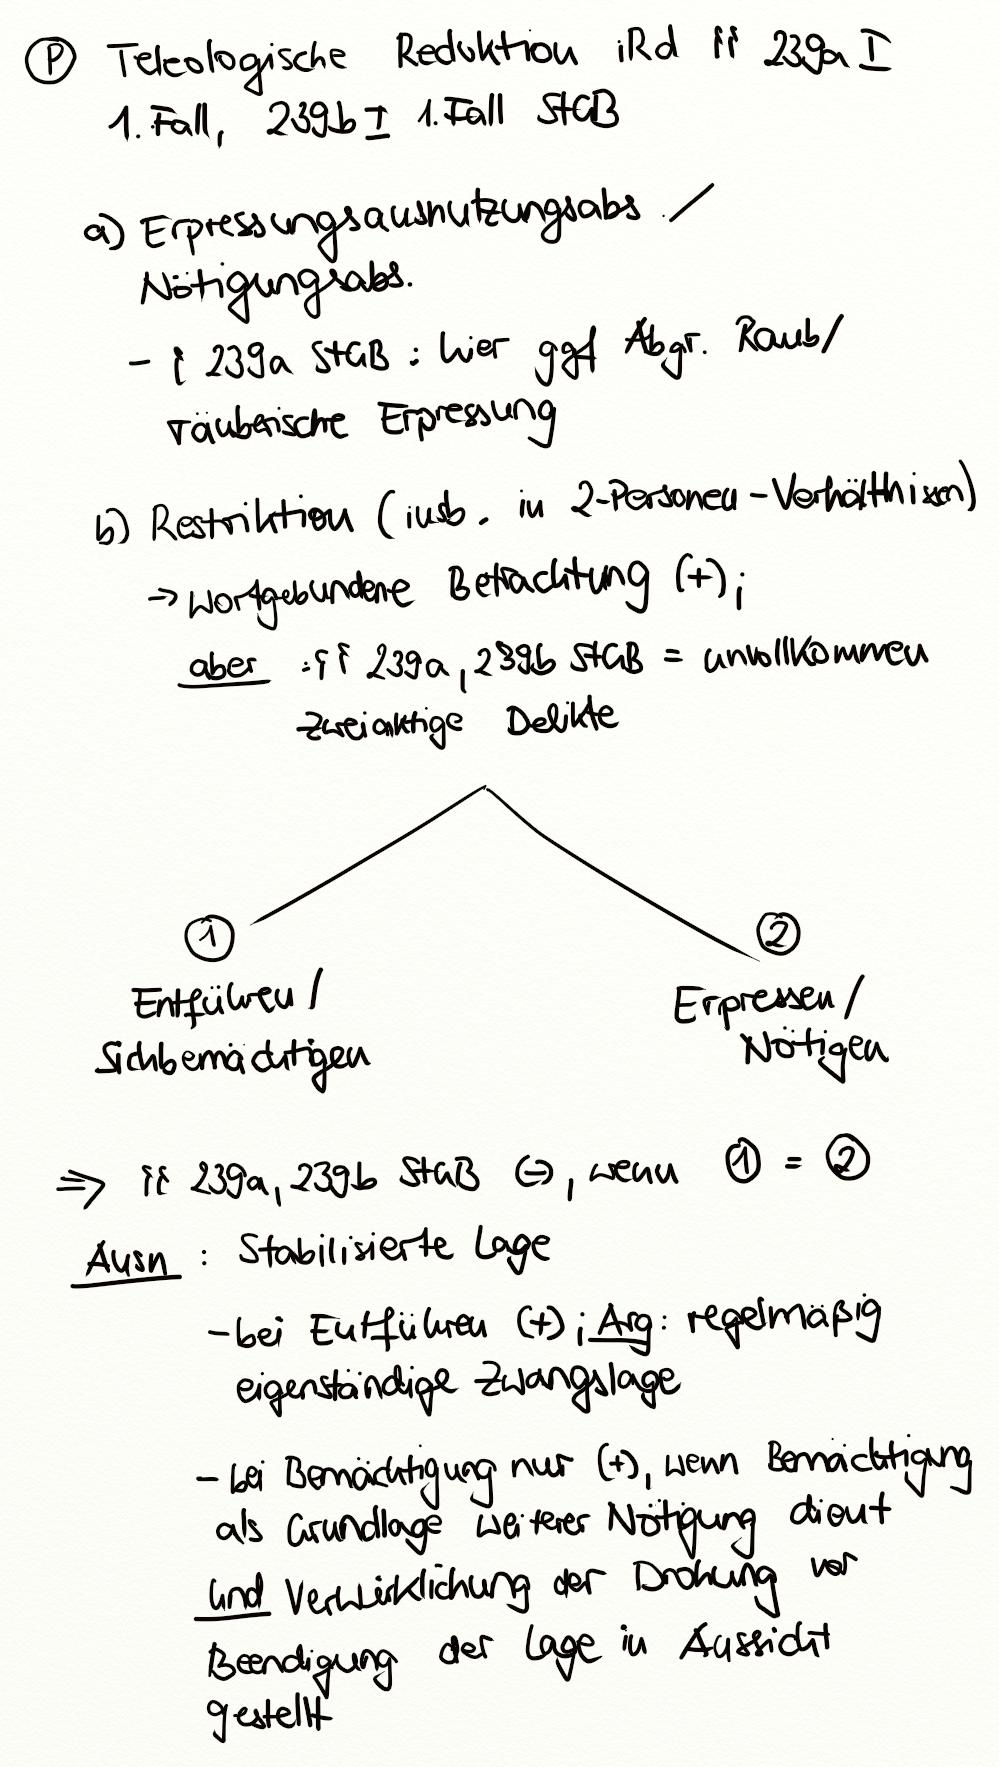 Ⓟ Teleologische Reduktion iRd §§ 239a I
1. Fall, 239b I 1. Fall StGB
a) Erpressungsausnutzungsabs. /
Nötigungsabs.
- § 239a StGB : hier ggf Abgr. Raub/
räuberische Erpressung
b) Restriktion (insb. in 2-Personen-Verhältnissen)
→ wortgebundene Betrachtung (+);
aber : §§ 239a, 239b StGB = unvollkommen
zweiaktige Delikte
① ②
Entführen / Erpressen /
Sichbemächtigen Nötigen
⇒ §§ 239a, 239b StGB (-), wenn ① = ②
Ausn : Stabilisierte Lage
- bei Entführen (+); Arg: regelmäßig
eigenständige Zwangslage
- bei Bemächtigung nur (+), wenn Bemächtigung
als Grundlage weiterer Nötigung dient
und Verwirklichung der Drohung vor
Beendigung der Lage in Aussicht
gestellt